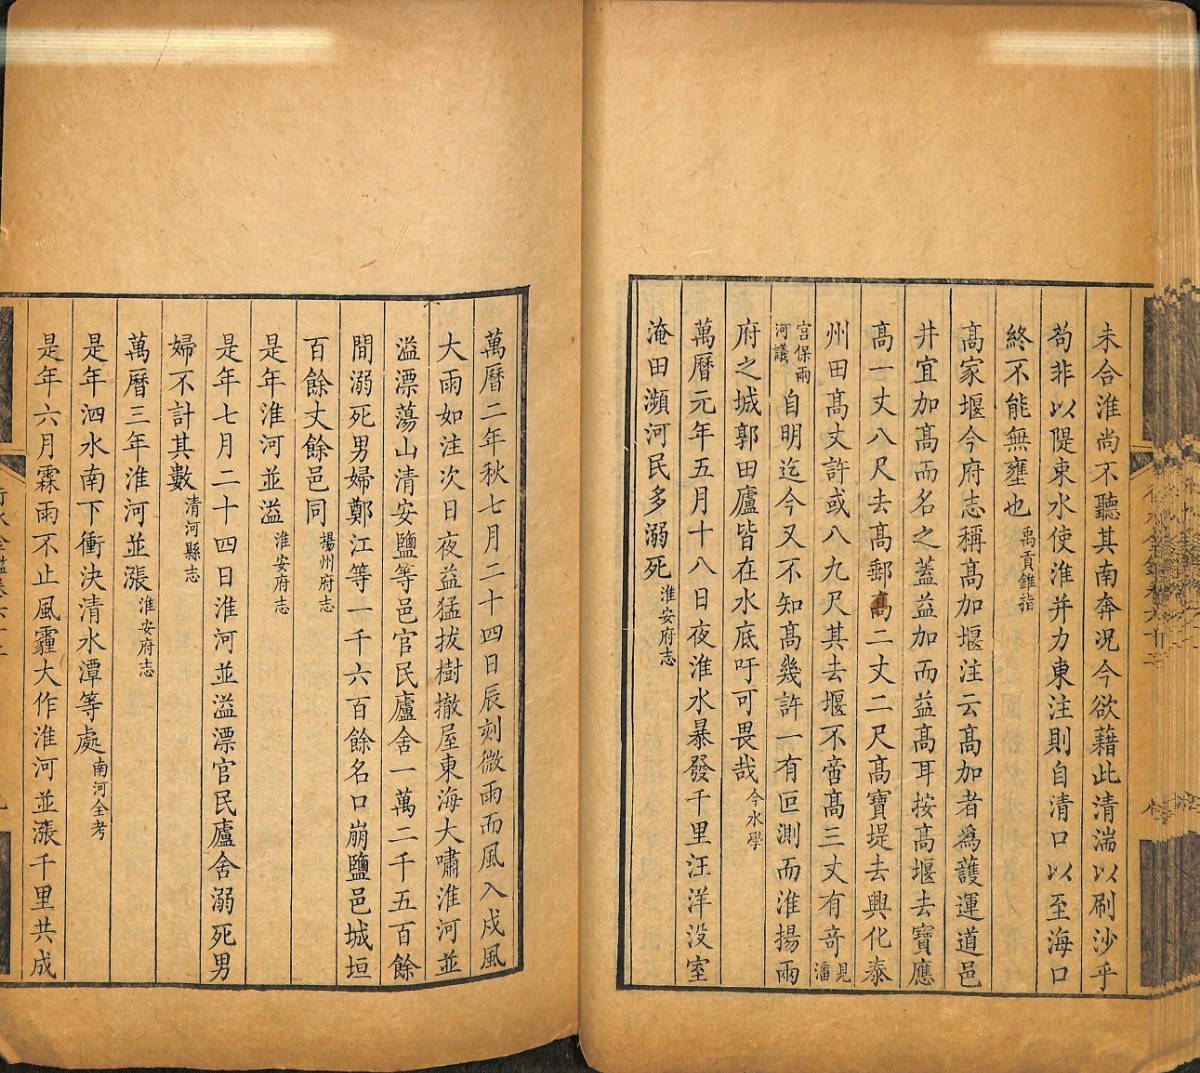 未合淮尚不聽其南奔況今欲藉此清湍以刷沙乎
苟非以隄束水使淮并力東注則自清口以至海口
終不能無壅也禹貢錐指
高家堰今府志稱高加堰注云高加者爲護運道邑
井宜加高而名之蓋益加而益高耳按高堰去寶應
高一丈八尺去高郵高二丈二尺高寶堤去興化泰
州田高丈許或八九尺其去堰不啻高三丈有奇見潘
宮保兩河議自明迄今又不知高幾許一有叵測而淮揚兩
府之城郭田廬皆在水底吁可畏哉今水學
萬曆元年五月十八日夜淮水暴發千里汪洋没室
淹田瀕河民多溺死淮安府志
萬曆二年秋七月二十四日辰刻微雨而風入戌風
大雨如注次日夜益猛拔樹撤屋東海大嘯淮河並
溢漂蕩山清安鹽等邑官民廬舍一萬二千五百餘
間溺死男婦鄭江等一千六百餘名口崩鹽邑城垣
百餘丈餘邑同揚州府志
是年淮河並溢淮安府志
是年七月二十四日淮河並溢漂官民廬舍溺死男
婦不計其數清河縣志
萬曆三年淮河並漲淮安府志
是年泗水南下衝決清水潭等處南河全考
是年六月霖雨不止風霾大作淮河並漲千里共成